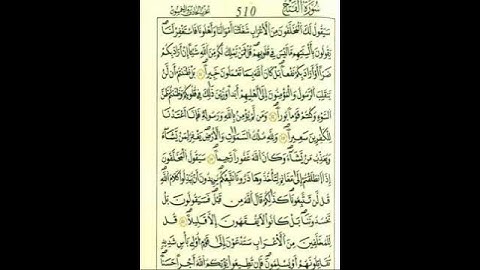 سُورَةُ الْفَتْحِ 510 الجزء السادس والعشرون
سَيَقُولُ لَكَ الْمُخَلَّفُونَ مِنَ الْأَعْرَابِ شَغَلَتْنَا أَمْوَالُنَا وَأَهْلُونَا فَاسْتَغْفِرْ لَنَا
يَقُولُونَ بِأَلْسِنَتِهِمْ مَا لَيْسَ فِي قُلُوبِهِمْ قُلْ فَمَنْ يَمْلِكُ لَكُمْ مِنَ اللَّهِ شَيْئًا إِنْ أَرَادَ بِكُمْ
ضَرًّا أَوْ أَرَادَ بِكُمْ نَفْعًا بَلْ كَانَ اللَّهُ بِمَا تَعْمَلُونَ خَبِيرًا بَلْ ظَنَنْتُمْ أَنْ لَنْ
يَنْقَلِبَ الرَّسُولُ وَالْمُؤْمِنُونَ إِلَى أَهْلِيهِمْ أَبَدًا وَزُيِّنَ ذَلِكَ فِي قُلُوبِكُمْ وَظَنَنْتُمْ ظَنَّ
السَّوْءِ وَكُنْتُمْ قَوْمًا بُورًا وَمَنْ لَمْ يُؤْمِنْ بِاللَّهِ وَرَسُولِهِ فَإِنَّا أَعْتَدْنَا
لِلْكَافِرِينَ سَعِيرًا وَلِلَّهِ مُلْكُ السَّمَوَاتِ وَالْأَرْضِ يَغْفِرُ لِمَنْ يَشَاءُ
وَيُعَذِّبُ مَنْ يَشَاءُ وَكَانَ اللَّهُ غَفُورًا رَحِيمًا سَيَقُولُ الْمُخَلَّفُونَ
إِذَا انْطَلَقْتُمْ إِلَى مَغَانِمَ لِتَأْخُذُوهَا ذَرُونَا نَتَّبِعْكُمْ يُرِيدُونَ أَنْ يُبَدِّلُوا كَلَامَ اللَّهِ
قُلْ لَنْ تَتَّبِعُونَا كَذَلِكُمْ قَالَ اللَّهُ مِنْ قَبْلُ فَسَيَقُولُونَ بَلْ
تَحْسُدُونَنَا بَلْ كَانُوا لَا يَفْقَهُونَ إِلَّا قَلِيلًا قُلْ
لِلْمُخَلَّفِينَ مِنَ الْأَعْرَابِ سَتُدْعَوْنَ إِلَى قَوْمٍ أُولِي بَأْسٍ شَدِيدٍ
تُقَاتِلُونَهُمْ أَوْ يُسْلِمُونَ فَإِنْ تُطِيعُوا يُؤْتِكُمُ اللَّهُ أَجْرًا حَسَنًا